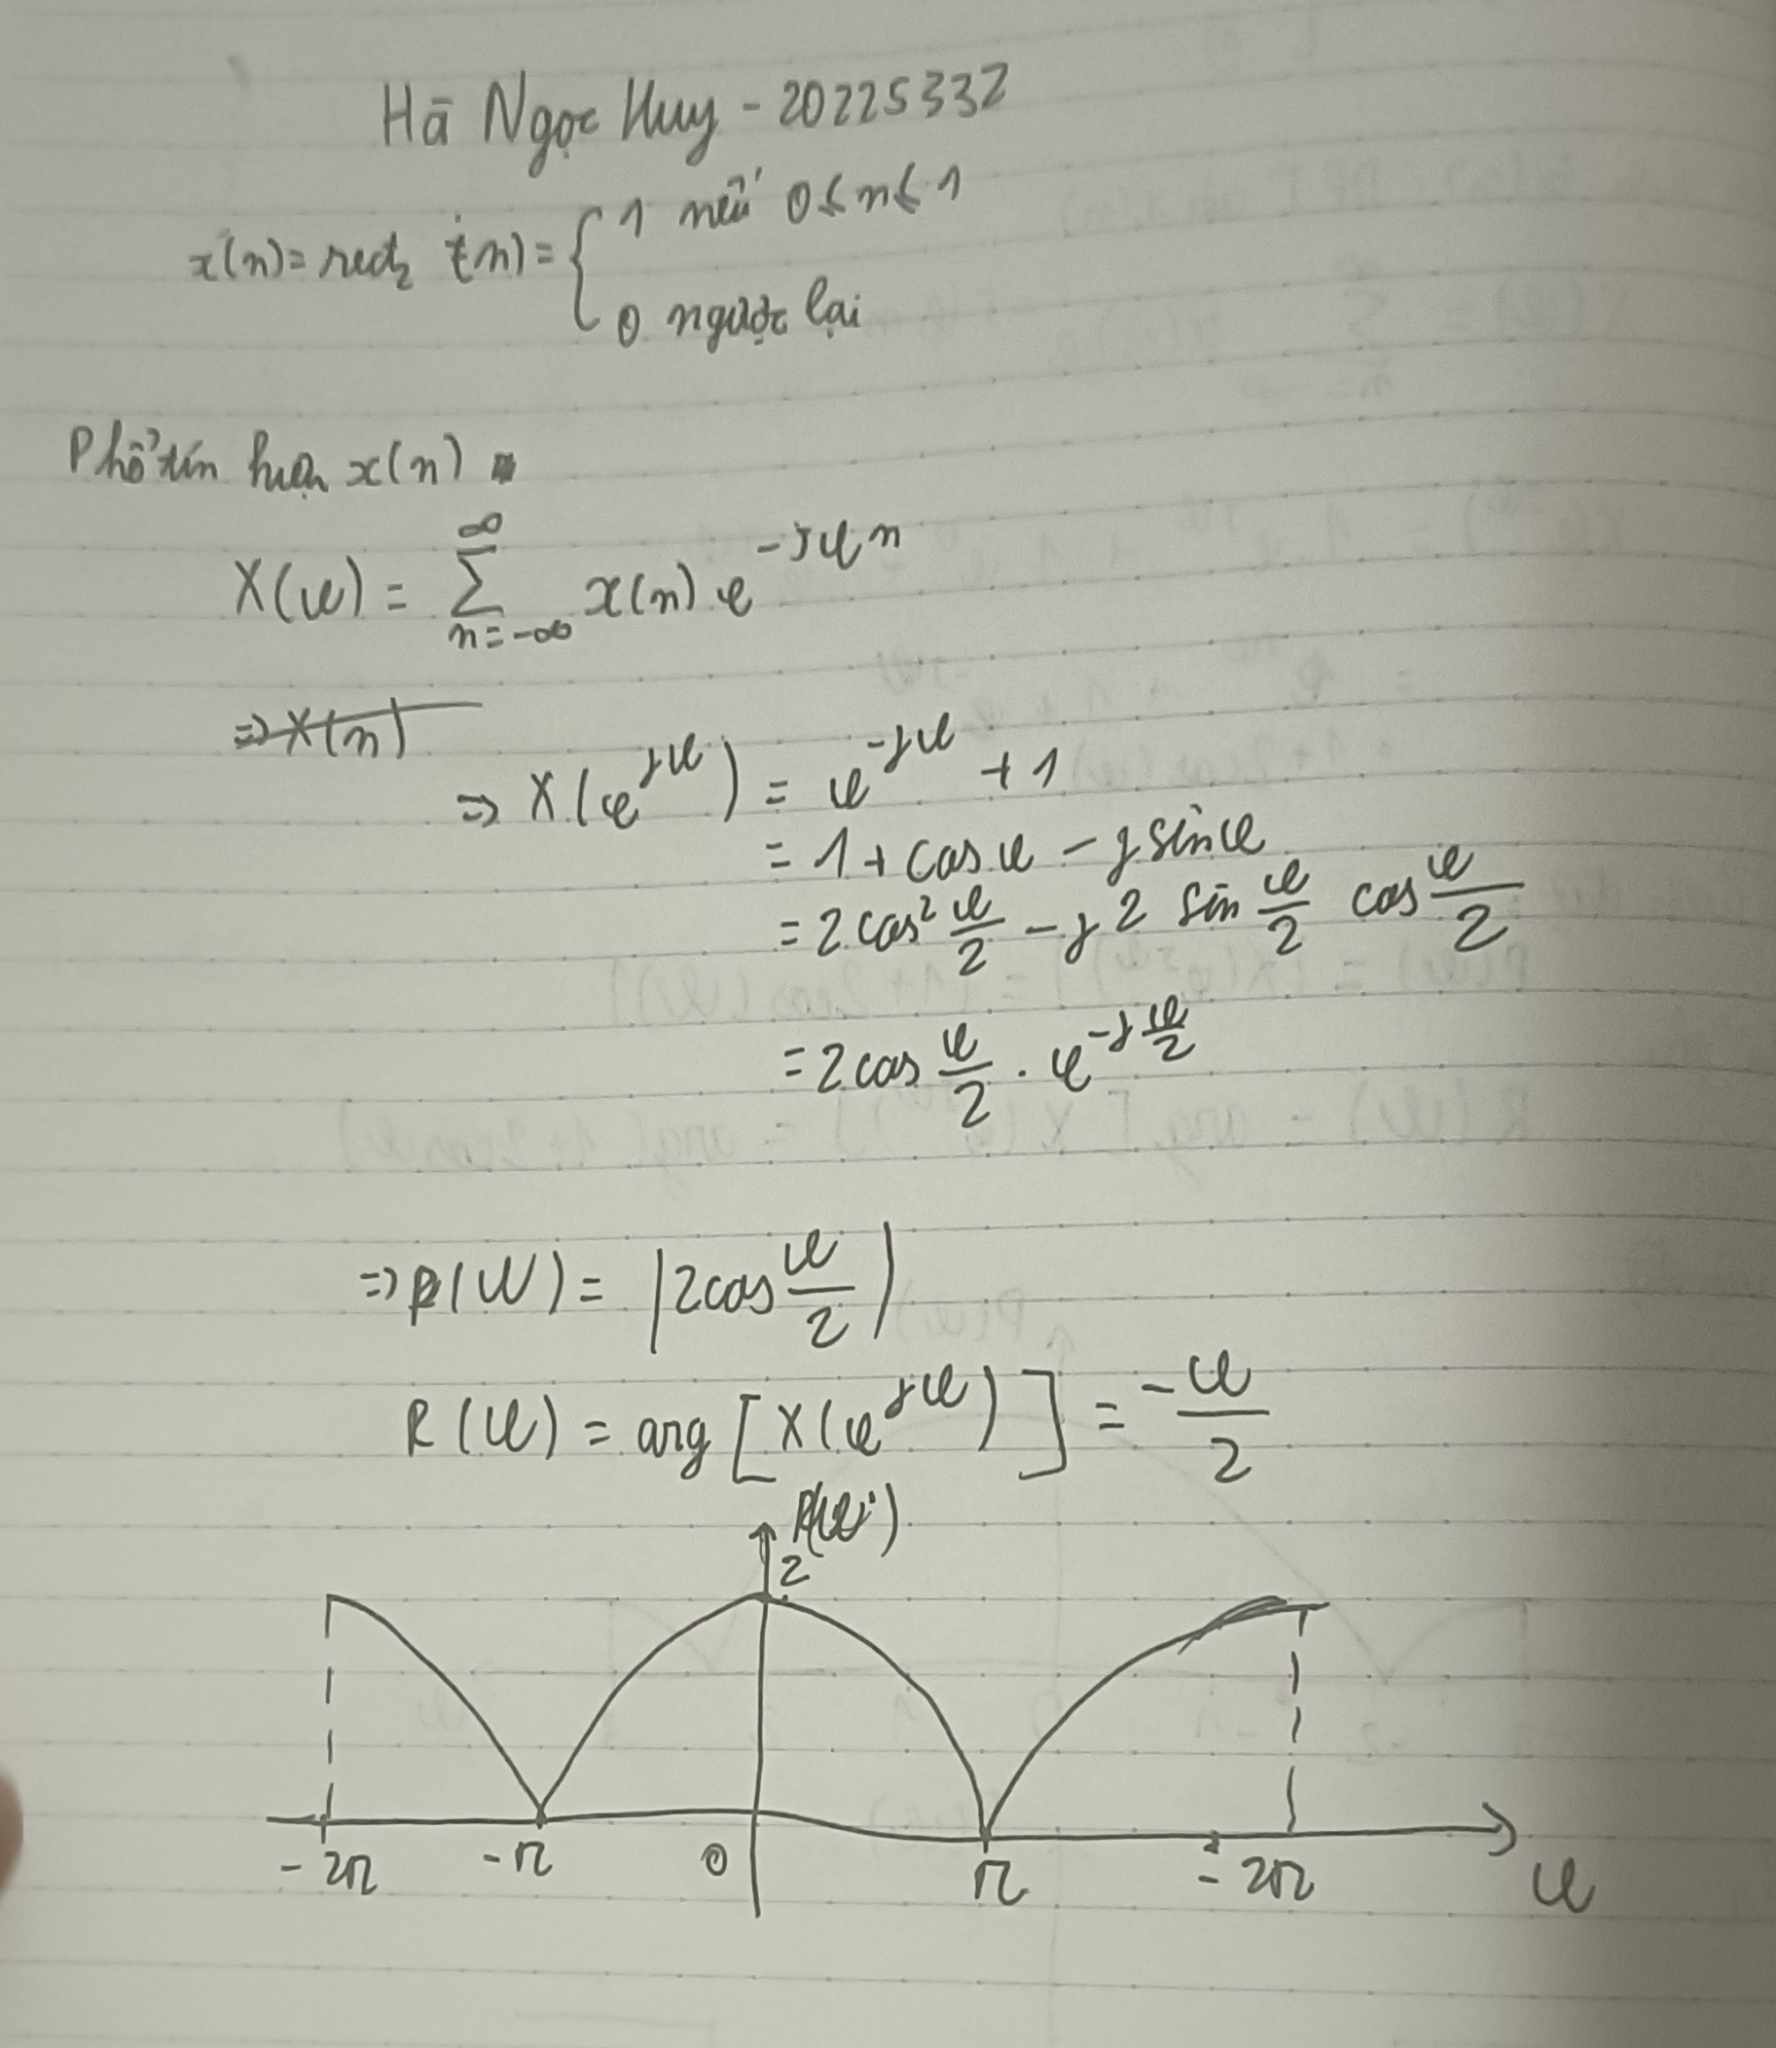 Hà Ngọc Huy - 20225332
x(n) = rect₂ (n) = { 1 nếu 0 ≤ n ≤ 1
0 ngược lại
Phổ tín hiệu x(n)
X(ω) = ∑_{n=-∞}^{∞} x(n) e^{-jωn}
⇒ X(n)
⇒ X(e^{jω}) = e^{-jω} + 1
= 1 + cos ω - j sin ω
= 2 cos² ω/2 - j 2 sin ω/2 cos ω/2
= 2 cos ω/2 . e^{-j ω/2}
⇒ R(ω) = |2 cos ω/2|
R(ω) = arg [X(e^{jω})] = -ω/2
R(ω)
2
-2π -π 0 π - 2π ω